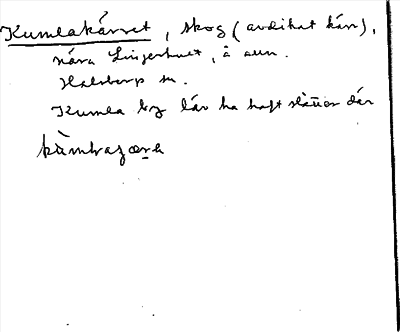 Kumlakärret, skog (avdikat kärr),
nära Lingerhult, å ann.
Halsberg sn.
Kumla by lär ha haft slåtter där